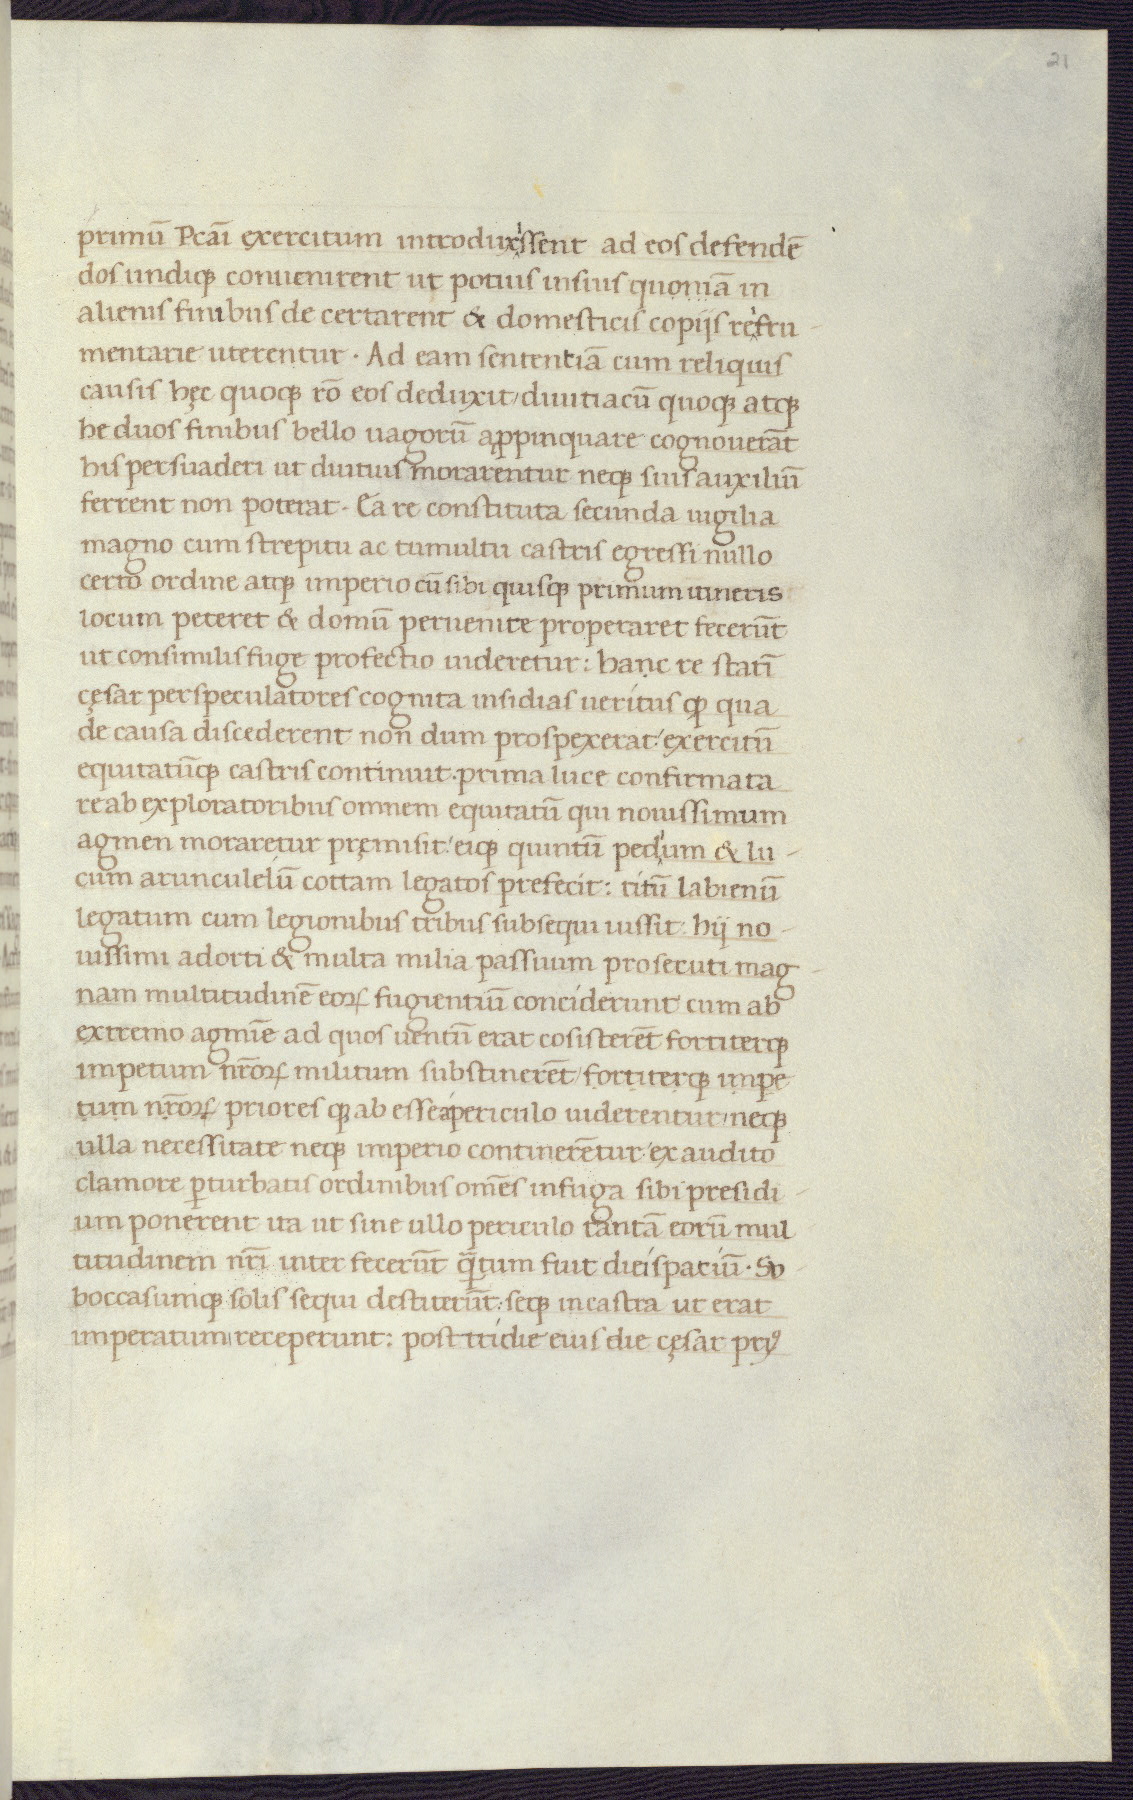 21
primū Pcāi exercitum introduxissent ad eos defendē
dos undiqꝫ conuenirent ut potius insuis quoniā in
alienis finibus de certarent & domesticis copijs reifru-
mentarie uterentur · Ad eam sententiā cum reliquis
causis hęc quoqꝫ rō eos deduxit / diuitiacū quoqꝫ atqꝫ
he duos finibus bello uagorū aꝓpinquare cognouerāt
his persuaderi ut diutius morarentur neqꝫ suis auxiliū
ferrent non poterat · Ea re constituta secunda uigilia
magno cum strepitu ac tumultu castris egressi nullo
certo ordine atqꝫ imperio cū sibi quisqꝫ primum itineris
locum peteret & domū peruenire properaret fecerūt
ut consimilis fuge profectio uideretur : hanc re statī
cęsar perspeculatores cognita insidias ueritus qꝫ qua
de causa discederent non dum prospexerat / exercitū
equitatūqꝫ castris continuit · prima luce confirmata
re ab exploratoribus omnem equitatū qui nouissimum
agmen moraretur pręmisit / eiqꝫ quintū pedium & lu-
cum arunculeiū cottam legatos prefecit : titū labienū
legatum cum legionibus tribus subsequi iussit hij no-
uissimi adorti & multa milia passuum prosecuti mag-
nam multitudinē eoꝝ fugientiū conciderunt cum ab
extremo agmīe ad quos uentū erat cosisterēt fortiterqꝫ
impetum nr̄oꝝ militum substinerēt / fortiterqꝫ impe
tum nr̄oꝝ priores qꝫ ab esse a periculo uiderentur / neqꝫ
ulla necessitate neqꝫ imperio continerētur / ex audito
clamore ꝑturbatis ordinibus omēs infuga sibi presidi-
um ponerent ita ut sine ullo periculo tantā eorū mul
titudinem nr̄i inter fecerūt qᵃ̄tum fuit diei spaciū · Su-
boccasumqꝫ solis sequi destiterūt : seqꝫ incastra ut erat
imperatum receperunt : post tridie eius die cęsar priꝰ